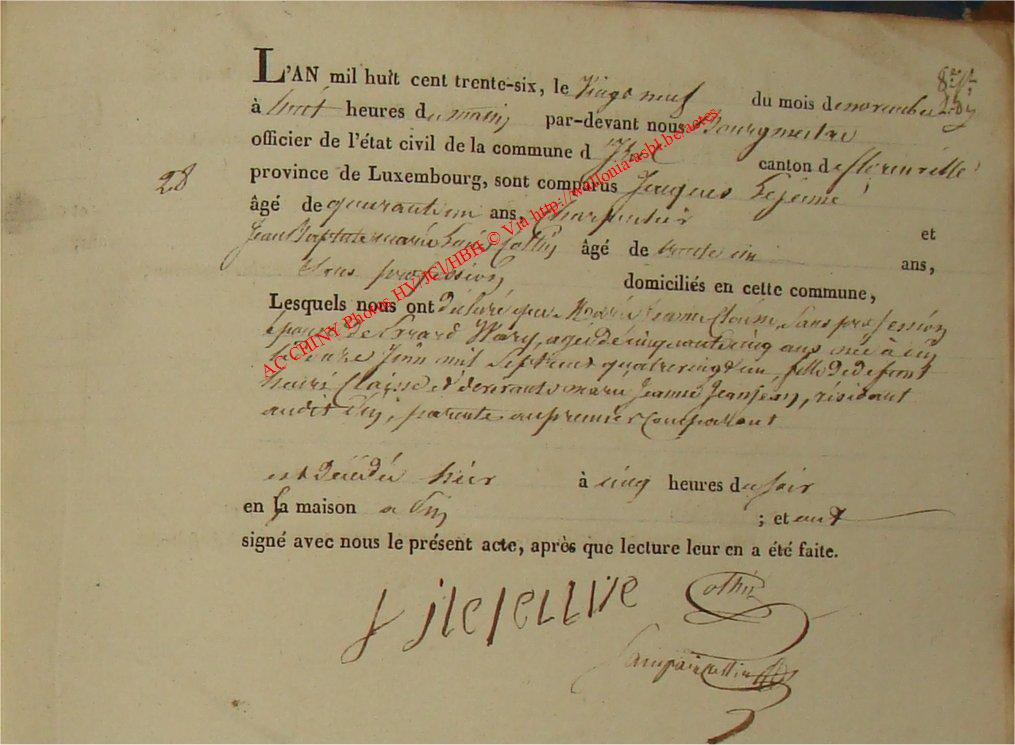 L'AN mil huit cent trente-six, le vingt neuf du mois de novembre
à huit heures du matin par-devant nous Bourgmestre
officier de l'état civil de la commune d'Izel canton de florenville
28
province de Luxembourg, sont comparus Jacques Lejeune
âgé de quarante un ans, Charpentier et
Jean Baptiste marie Cothy âgé de trente un ans,
sans profession domiciliés en cette commune,
Lesquels nous ont déclaré que Marie Jeanne sans profession
épouse de Erard Wary, agée de cinquante cinq ans née à
Juin mil Sept cent quatre vingt un fille de defunt
Henri et de vivante marie Jeanne résidant
audit parente au premier Comparant
est décédée hier à cinq heures du soir
en sa maison a ; et ont
signé avec nous le présent acte, après que lecture leur en a été faite.
J lejeune Cothy
AC CHINY Photos HV/JCl/HBH © Via http://wallonia-asbl.be/actes